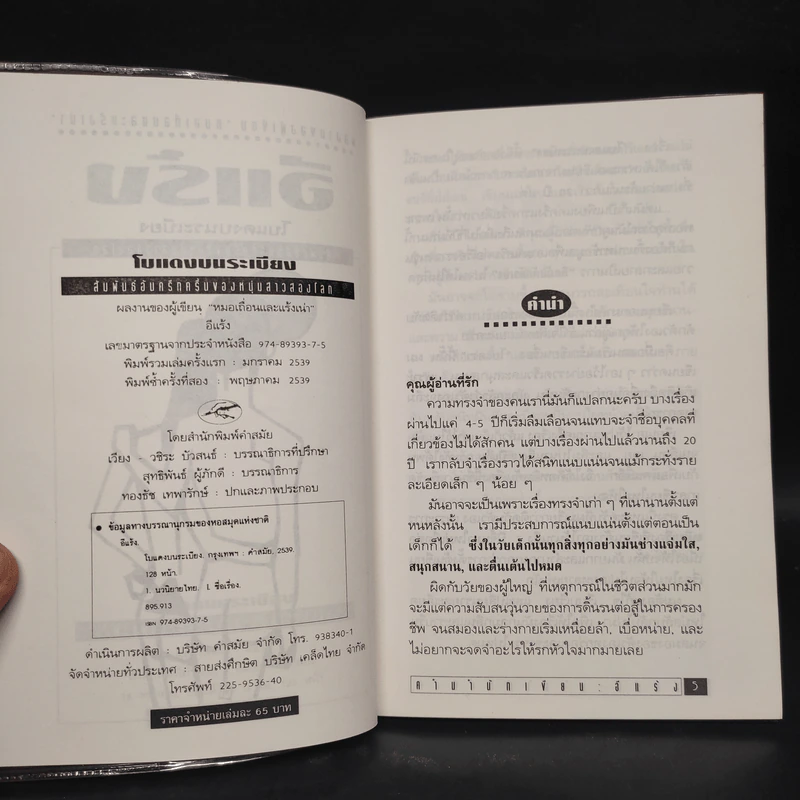 โบแดงบนระเบียง
สัมพันธ์อันคริกครื้นของหนุ่มสาวสองโลก
ผลงานของผู้เขียน "หมอเถื่อนและแร้งเน่า"
อีแร้ง
เลขมาตรฐานสากลประจำหนังสือ 974-89393-7-5
พิมพ์รวมเล่มครั้งแรก : มกราคม 2539
พิมพ์ซ้ำครั้งที่สอง : พฤษภาคม 2539
โดยสำนักพิมพ์คำสมัย
เวียง - วชิระ บัวสนธ์ : บรรณาธิการที่ปรึกษา
สุทธิพันธ์ ผู้ภักดี : บรรณาธิการ
ทองธัช เทพารักษ์ : ปกและภาพประกอบ
● ข้อมูลทางบรรณานุกรมของหอสมุดแห่งชาติ
อีแร้ง.
โบแดงบนระเบียง. กรุงเทพฯ : คำสมัย, 2539.
128 หน้า.
1. นวนิยายไทย. I. ชื่อเรื่อง.
895.913
ISBN 974-89393-7-5
ดำเนินการผลิต : บริษัท คำสมัย จำกัด โทร. 938340-1
จัดจำหน่ายทั่วประเทศ : สายส่งศึกษิต บริษัท เคล็ดไทย จำกัด
โทรศัพท์ 225-9536-40
ราคาจำหน่ายเล่มละ 65 บาท
คำนำ
คุณผู้อ่านที่รัก
ความทรงจำของคนเรานี่มันก็แปลกนะครับ บางเรื่อง
ผ่านไปแค่ 4-5 ปีก็เริ่มลืมเลือนจนแทบจะจำชื่อบุคคลที่
เกี่ยวข้องไม่ได้สักคน แต่บางเรื่องผ่านไปแล้วนานถึง 20
ปี เรากลับจำเรื่องราวได้สนิทแนบแน่นจนแม้กระทั่งราย
ละเอียดเล็ก ๆ น้อย ๆ
มันอาจจะเป็นเพราะเรื่องทรงจำเก่า ๆ ที่เนานานตั้งแต่
หนหลังนั้น เรามีประสบการณ์แนบแน่นตั้งแต่ตอนเป็น
เด็กก็ได้ ซึ่งในวัยเด็กนั้นทุกสิ่งทุกอย่างมันช่างแจ่มใส,
สนุกสนาน, และตื่นเต้นไปหมด
ผิดกับวัยของผู้ใหญ่ ที่เหตุการณ์ในชีวิตส่วนมากมัก
จะมีแต่ความสับสนวุ่นวายของการดิ้นรนต่อสู้ในการครอง
ชีพ จนสมองและร่างกายเริ่มเหนื่อยล้า, เบื่อหน่าย, และ
ไม่อยากจะจดจำอะไรให้รกหัวใจมากมายเลย
คำนำนักเขียน : อีแร้ง 5